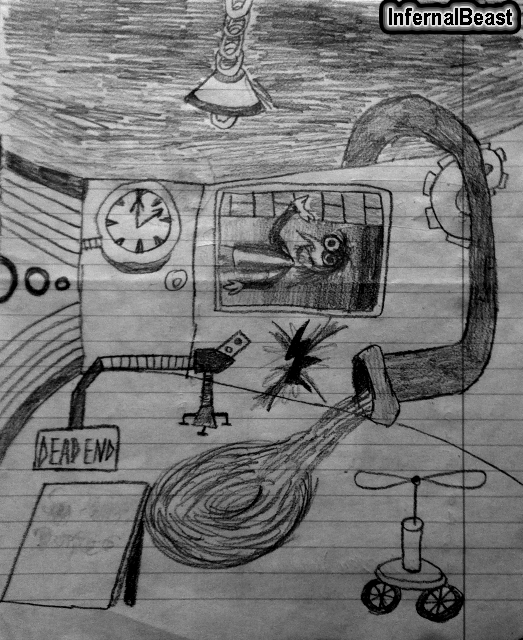 InfernalBeast
DEAD END